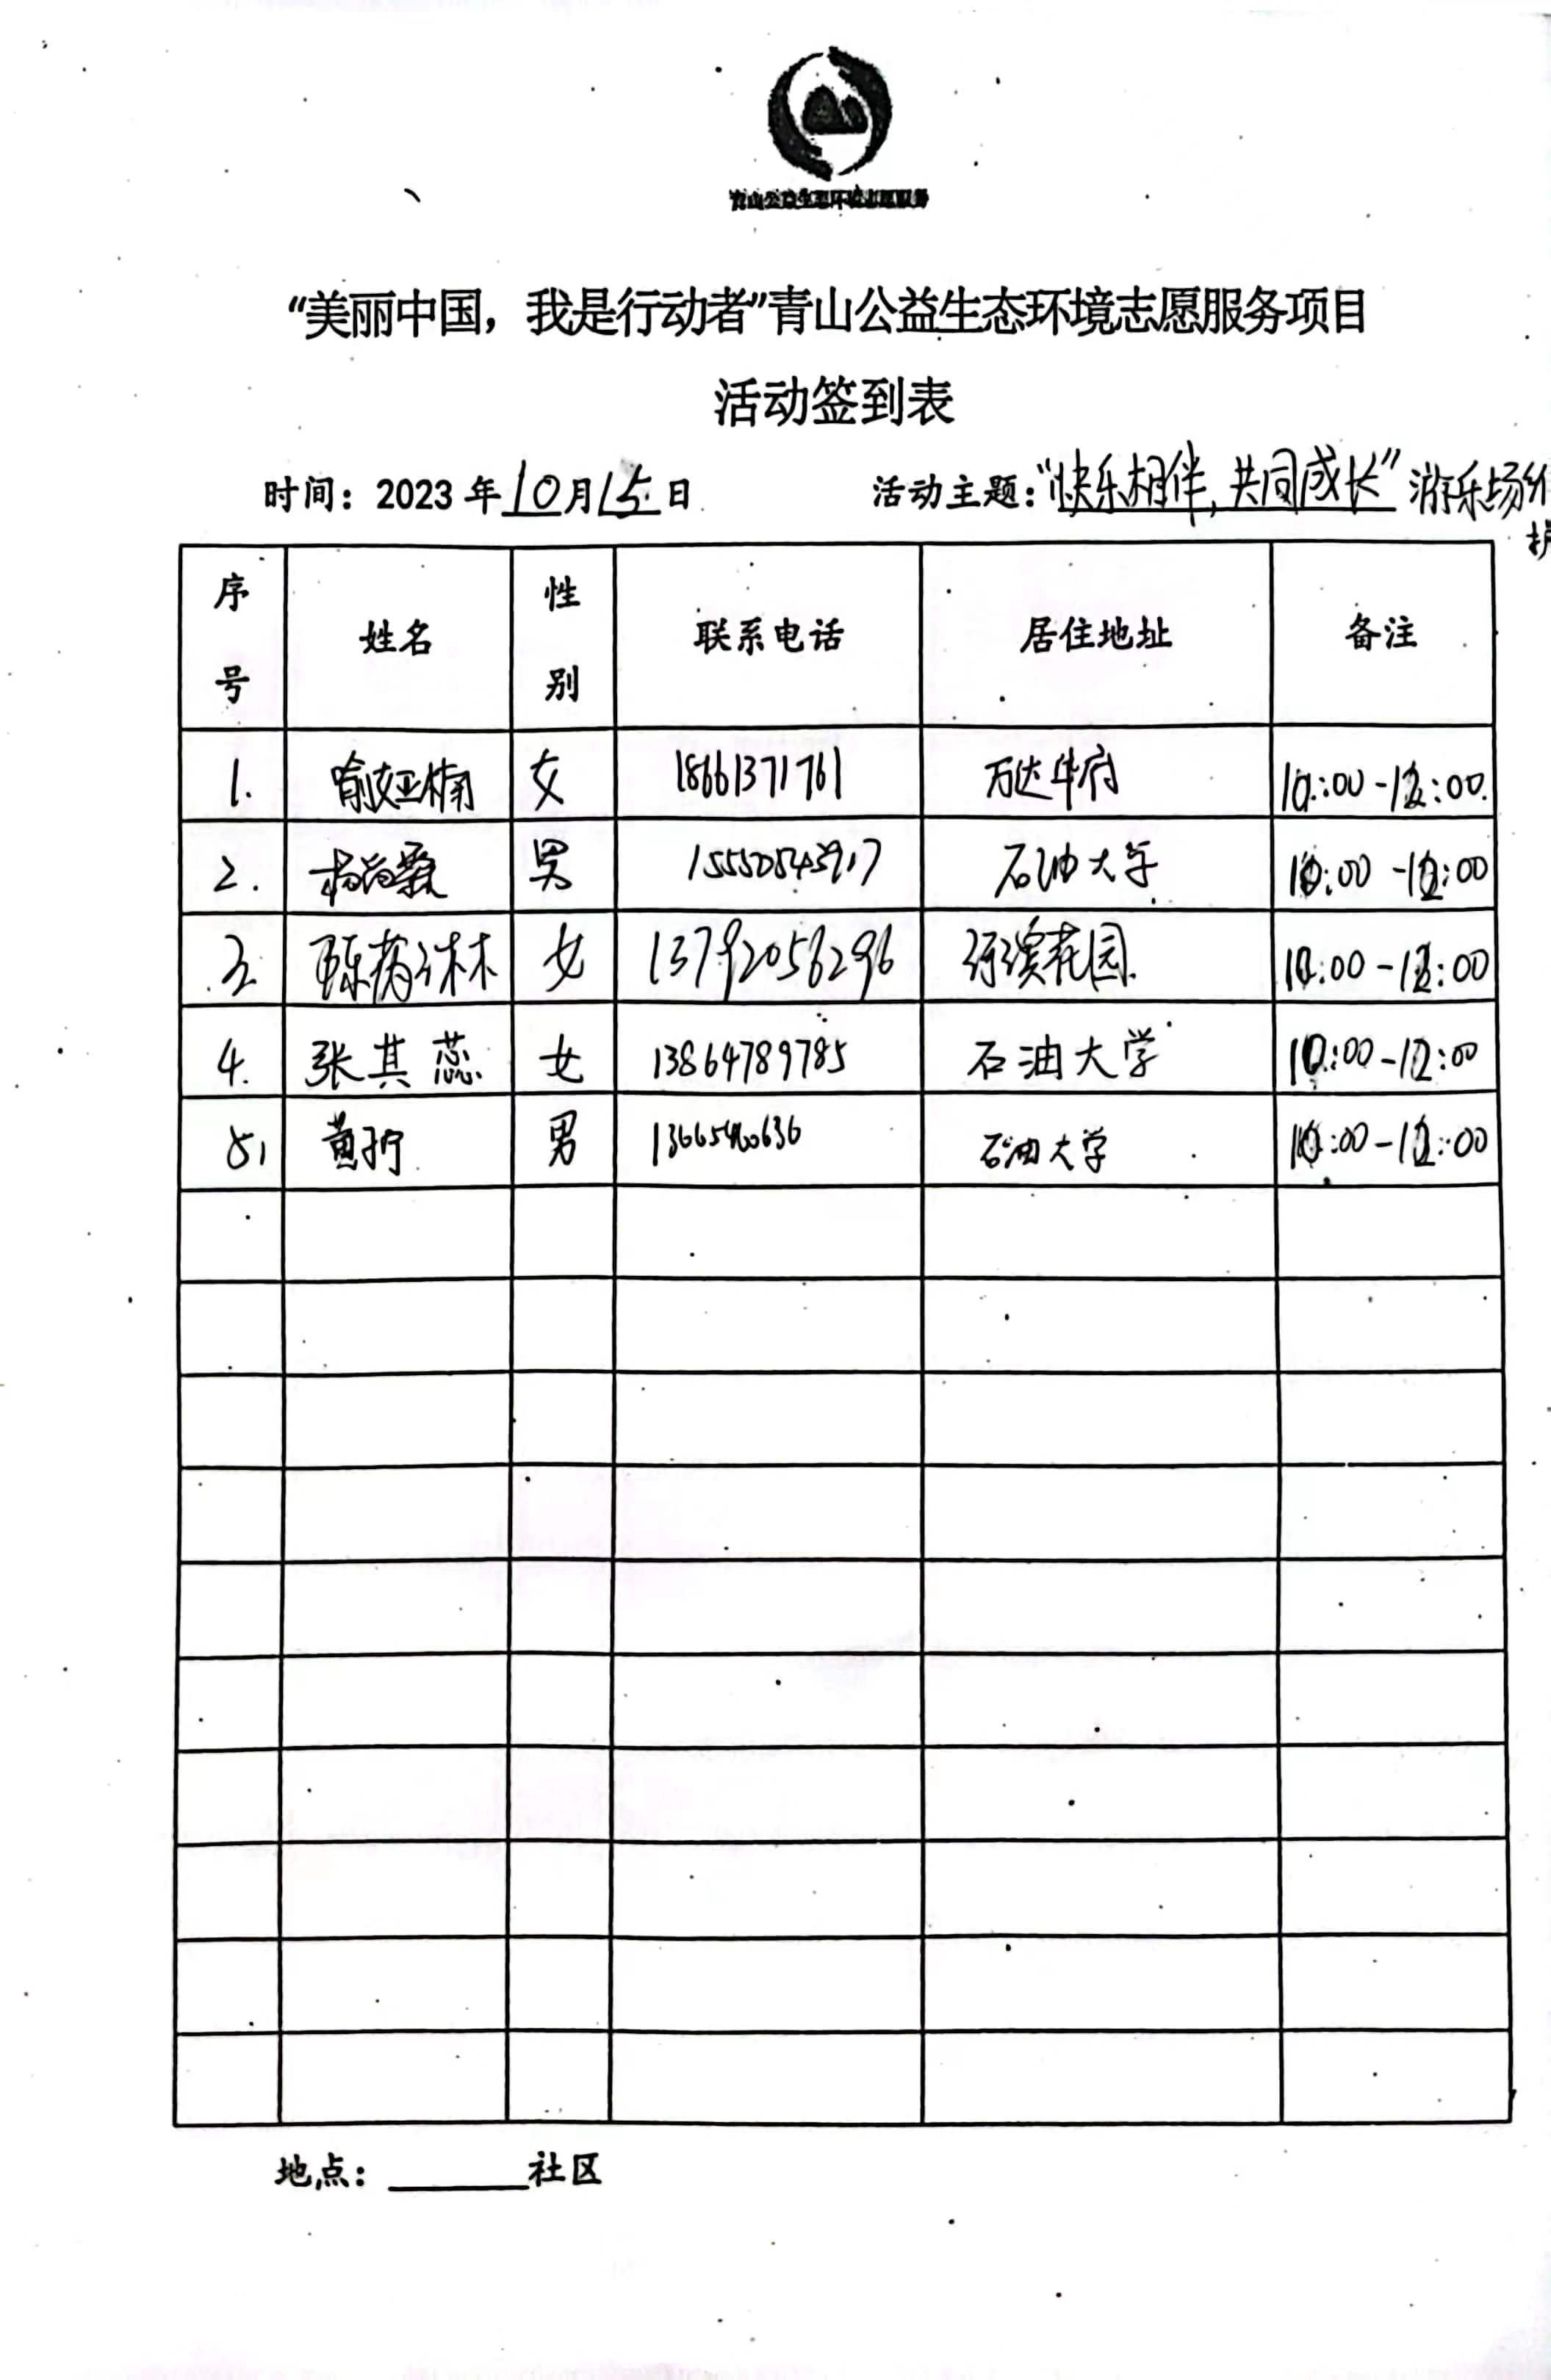 青山公益生态环境志愿服务
“美丽中国，我是行动者”青山公益生态环境志愿服务项目
活动签到表
时间：2023年10月15日 活动主题：“快乐相伴，共同成长”游乐场
序号 姓名 性别 联系电话 居住地址 备注
1. 女 18661371761 万达华府 10:00-12:00
2. 男 石油大学 10:00-12:00
3. 女 13792056296 花园 10:00-12:00
4. 张其蕊 女 13864789785 石油大学 10:00-12:00
5. 黄 男 石油大学 10:00-12:00
地点：______社区